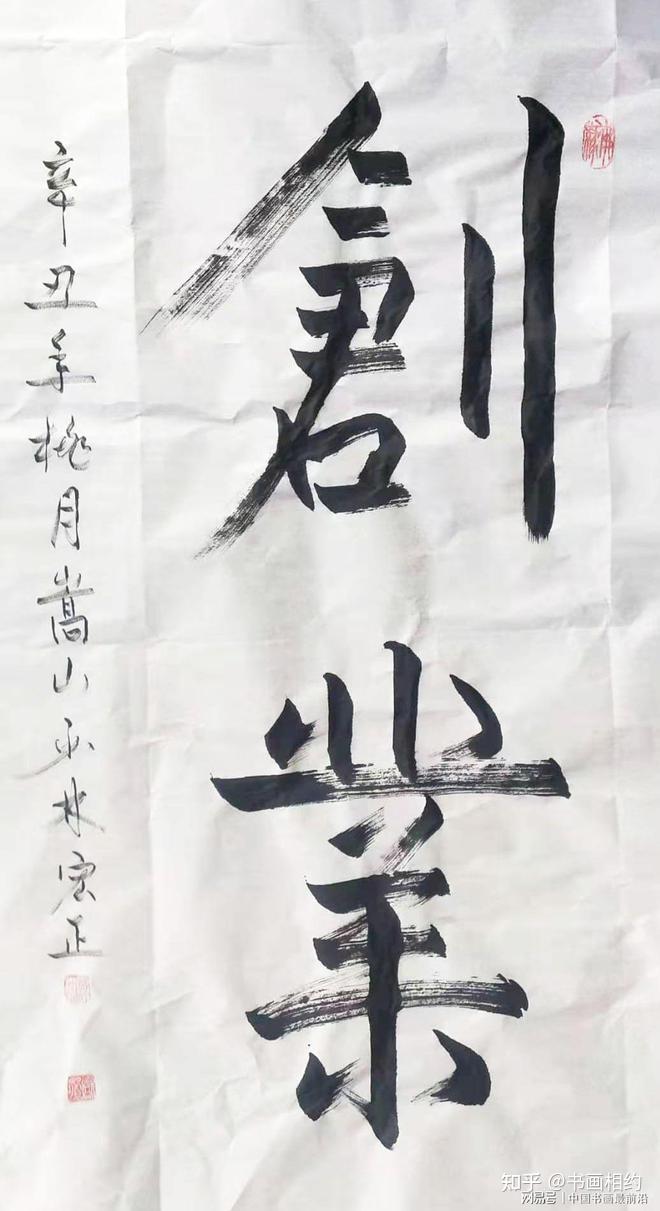 創業
辛丑年桃月嵩山少林宏正
知乎 @书画相约
网易号 | 中国书画最前沿